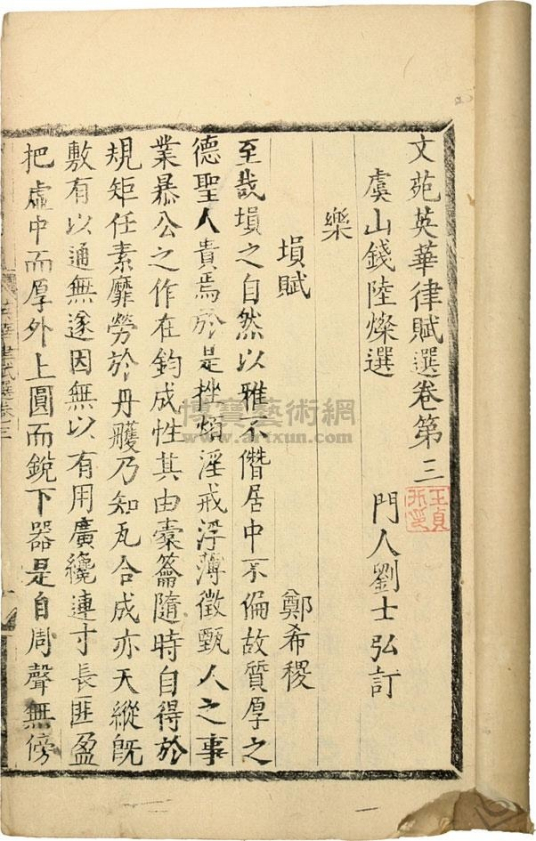 文苑英華律賦選卷第三
虞山錢陸燦選 門人劉士弘訂
樂
塤賦 鄭希稷
至哉塤之自然以雅不僭居中不偏故質厚之
德聖人貴焉於是挫煩淫戒浮薄徵甄人之事
業暴公之作在鈞成性其由橐籥隨時自得於
規矩任素靡勞於丹雘乃知瓦合成亦天縱旣
敷有以通無遂因無以有用廣纔連寸長匪盈
把虛中而厚外上圓而銳下器是自周聲無傍
博寶藝術網
www.artxun.com